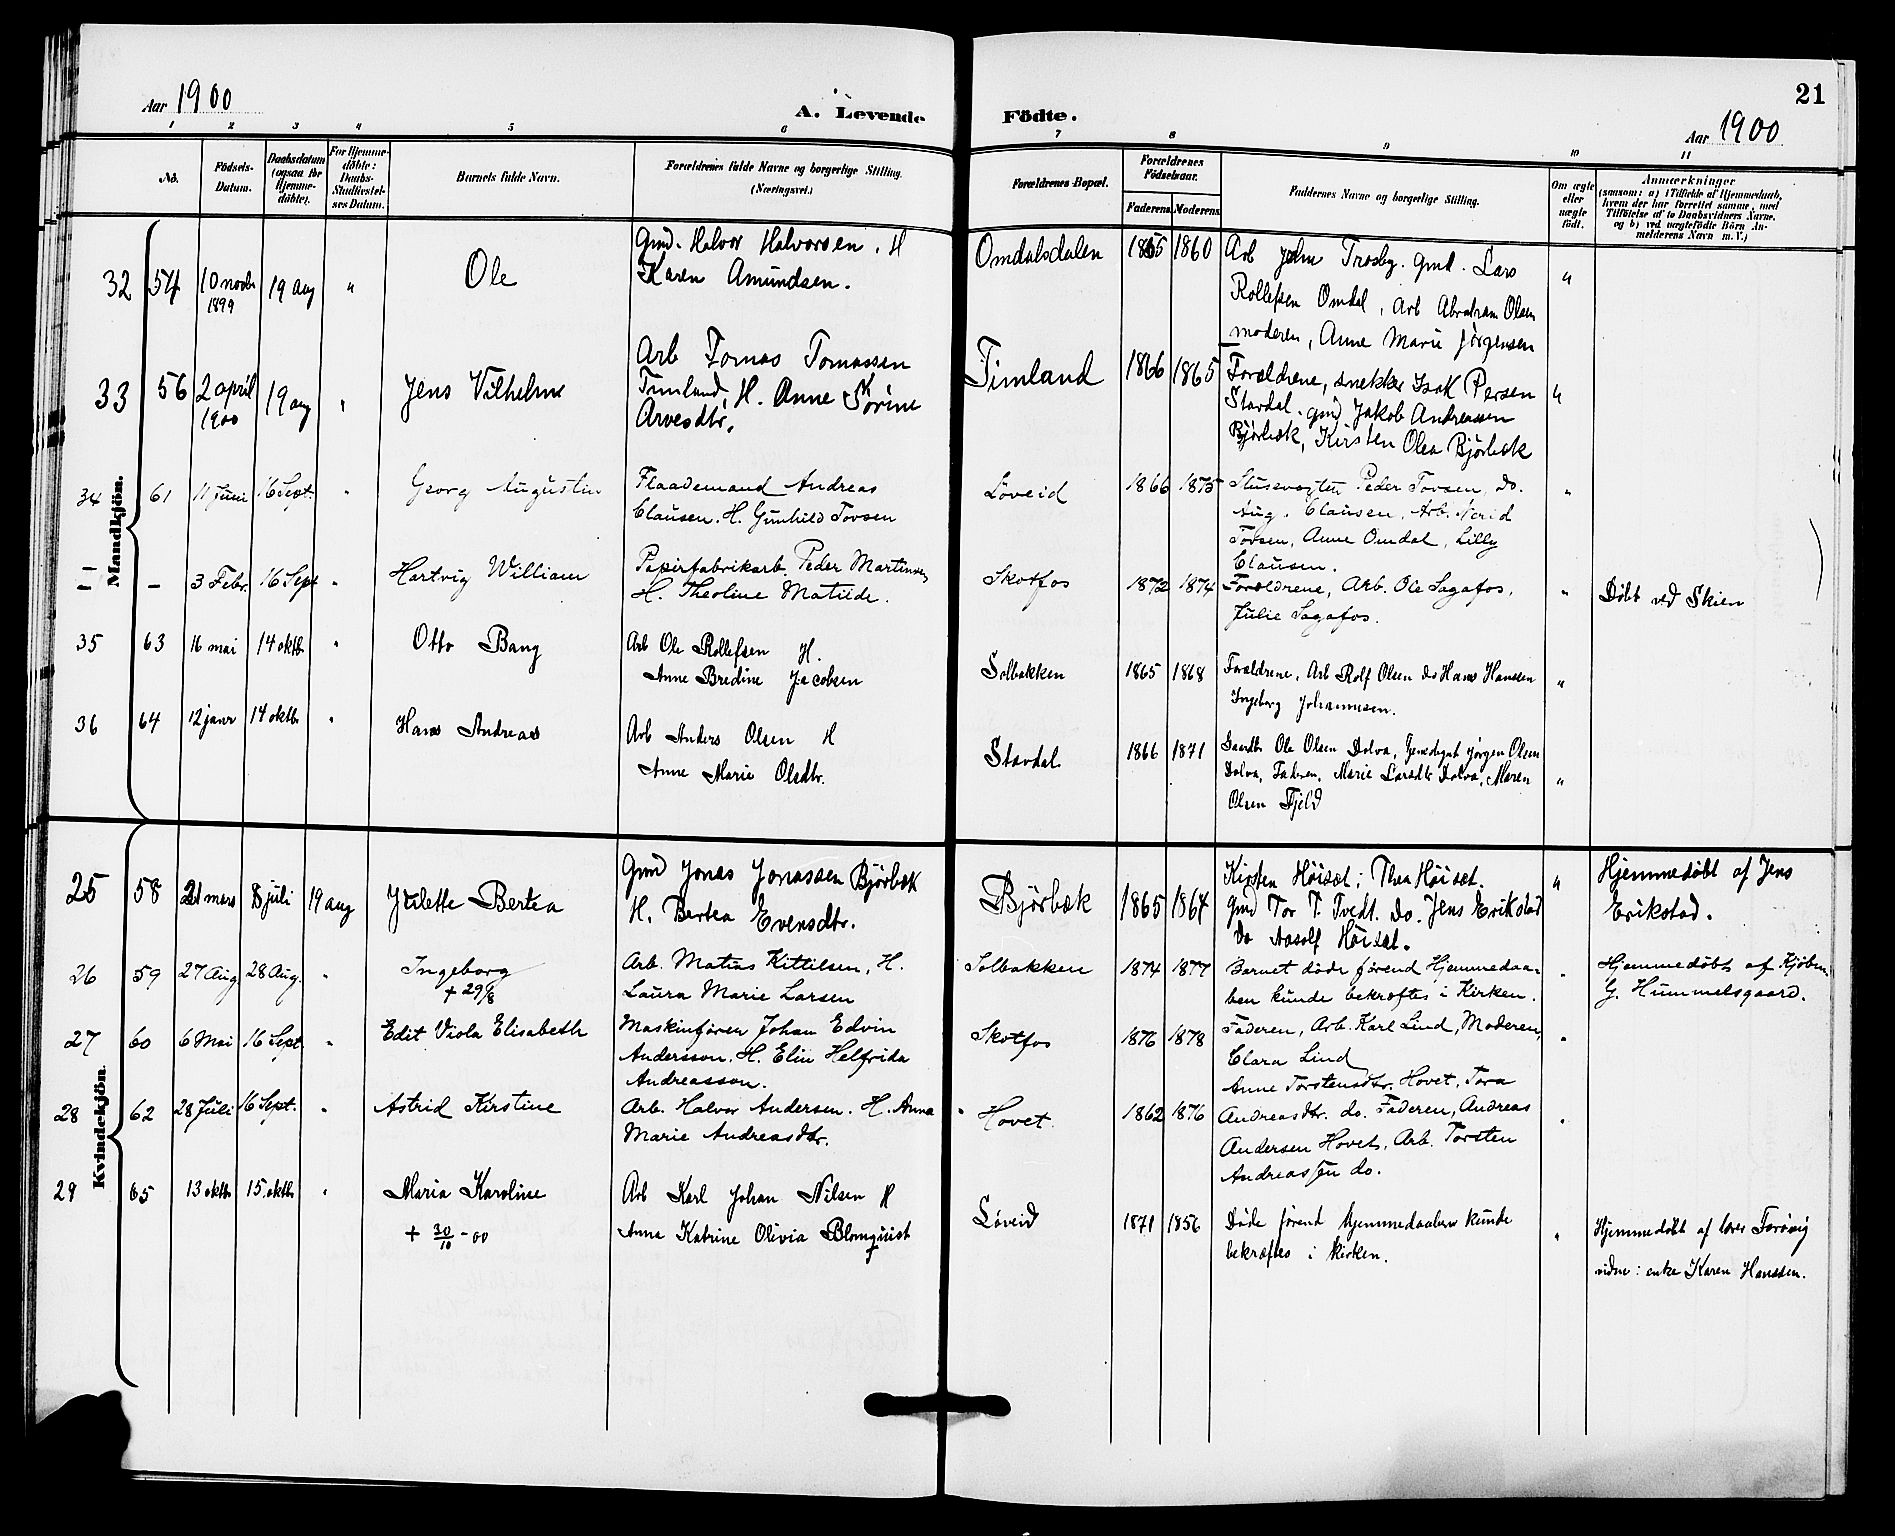 Aar 1900
A. Levende Födte.
21
Aar 1900
1 2 3 4 5 6 7 8 9 10 11
No.
Födsels-
Datum.
Daabsdatum
(ogsaa for
Hjemme-
döbte).
For Hjemme-
döbte:
Daabs-
Stadfæstel-
ses Datum.
Barnets fulde Navn.
Forældrenes fulde Navne og borgerlige Stilling.
(Næringsvei.)
Forældrenes Bopæl.
Forældrenes
Födselsaar.
Faderens Moderens
Faddernes Navne og borgerlige Stilling.
Om ægte
eller
uægte
født.
Anmærkninger
(saasom: a) i Tilfælde af Hjemmedaab,
hvem der har forrettet samme, med
Tilföielse af to Daabsvidners Navne,
og b) ved uægtefödte Börn An-
melderens Navn m. V.)
Mandkjön.
32 54 10 novbr 1899 19 aug " Ole
Gmd. Halvor Halvorsen. H
Karen Amundsen.
Omdalsdalen 1865 1860
Arb John Trosby. gmd. Lars
Rollefsen Omdal, Arb Abraham Olsen
moderen, Anne Marie Jørgensen
"
33 56 2 april 1900 19 aug " Jens Vilhelm
Arb Tomas Tomassen
Timland, H. Anne Kørine
Arvesdtr.
Timland 1866 1865
Forældrene, snekker Isak Persen
Stavdal. gmd Jakob Andreassen
Bjørbæk, Kirsten Olea Bjørbæk
"
34 61 11 Juni 16 Sept. " Georg Augustin
Flaademand Andreas
Clausen. H. Gunhild Tovsen
Løveid 1866 1875
Slusevogter Peder Tovsen, do.
Aug. Clausen, Arb.
Tovsen, Anne Omdal, Lilly
Clausen.
"
– – 3 Febr. 16 Sept " Hartvig William
Papirfabrikarb. Peder Martinsen
H. Theoline Matilde.
Skotfos 1872 1874
Forældrene, Arb. Ole Sagafos,
Julie Sagafos.
"
Døbt ved Skien
35 63 16 mai 14 oktb " Otto Bang
Arb Ole Rollefsen H.
Anne Bredine Jacobsen
Solbakken 1865 1868
Forældrene, Arb Rolf Olsen do Hans Hanssen
Ingeborg Johannesen.
"
36 64 12 janr 14 oktb " Hans Andreas
Arb Anders Olsen H
Anne Marie Olsdtr.
Stavdal 1866 1871
Gaardbr Ole Olsen Dolva, Jørgen Olsen
Dolva, Faderen, Marie Larsdtr Dolva, Maren
Olsen Fjeld
"
Kvindekjön.
25 58 21 mars 8 juli 19 aug Julette Bertea
Gmd Jonas Jonassen Bjørbæk
H. Bertea Evensdtr.
Bjørbæk 1865 1864
Kirsten Høisæt; Thea Høisæt.
Gmd Tor T. Tvedt. do. Jens Erikstad
do Aasolf Høisæt.
"
Hjemmedøbt af Jens
Erikstad.
26 59 27 Aug 28 Aug. " Ingeborg
+ 29/8
Arb. Matias Kittilsen, H.
Laura Marie Larsen
Solbakken 1874 1877
Barnet døde førend Hjemmedaa-
ben kunde bekræftes i Kirken.
"
Hjemmedøbt af Kjøbm.
G. Hummelsgaard.
27 60 6 Mai 16 Sept " Edit Viola Elisabeth
Maskinfører Johan Edvin
Andersson. H. Elin Helfrida
Andreasson.
Skotfos 1876 1878
Faderen, Arb. Karl Lind, Moderen,
Clara Lind
"
28 62 28 Juli 16 Sept. " Astrid Kirstine
Arb. Halvor Andersen. H. Anna
Marie Andreasdtr.
Hovet. 1862 1876
Anne Torstensdtr. Hovet, Tora
Andreasdtr. do. Faderen, Andreas
Andersen Hovet, Arb. Torsten
Andreassen do.
"
29 65 13 oktb 15. oktb " Maria Karoline
+ 30/10 - 00
Arb Karl Johan Nilsen H
Anne Katrine Olivia Blomquist
Løveid 1871 1856
Døde førend hjemmedaaben kunde
bekræftes i kirken.
"
Hjemmedøbt af lærer
vidne: enke Karen Hanssen.